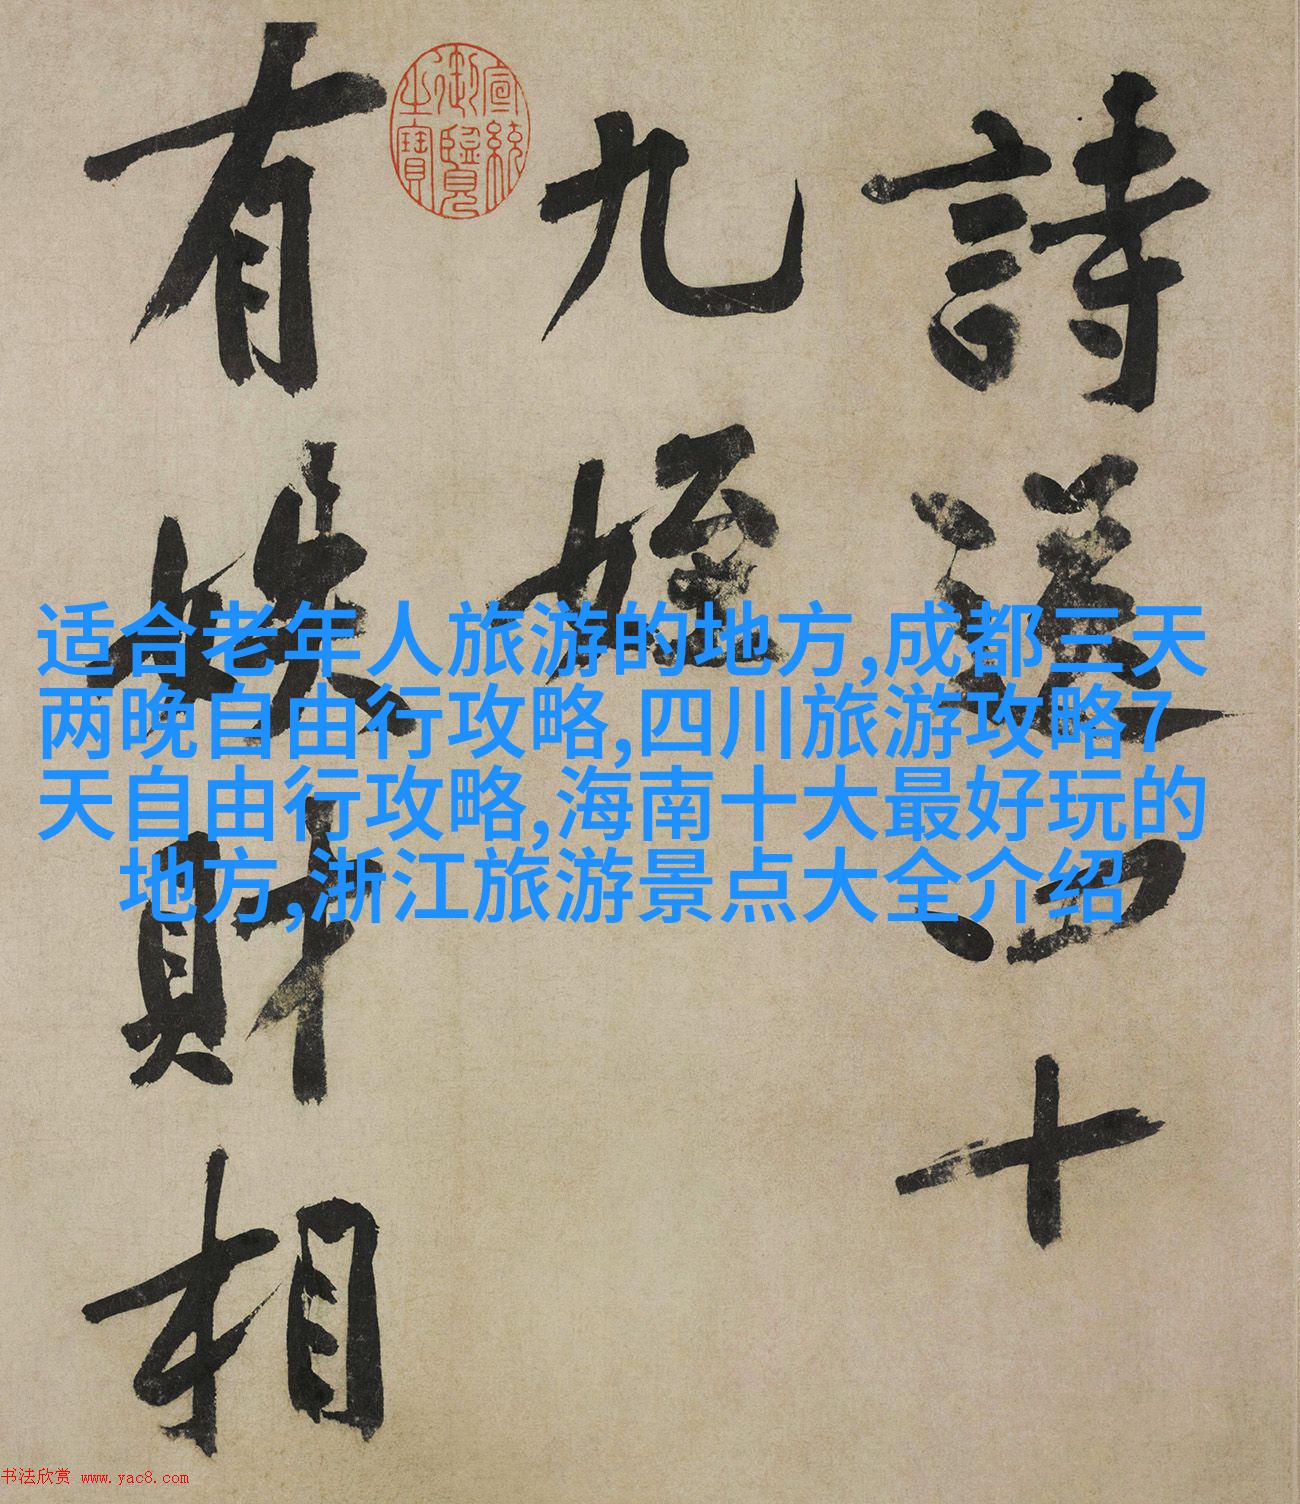 詩送四十
九姪
有財相
宣統
御覽
之寶
适合老年人旅游的地方,成都三天
两晚自由行攻略,四川旅游攻略7
天自由行攻略,海南十大最好玩的
地方,浙江旅游景点大全介绍
书法欣赏 www.yac8.com